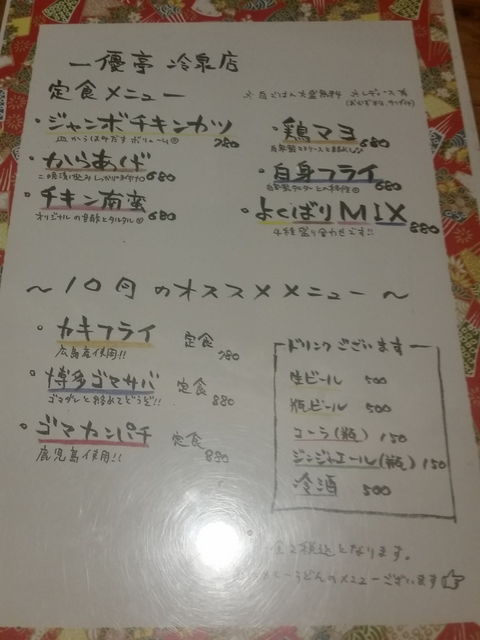 一優亭 冷泉店
定食メニュー
※白ごはん大盛無料 ※レディース有
・ジャンボチキンカツ 780
皿からはみだすボリューム
・からあげ 680
・チキン南蛮 680
オリジナルの甘酢とタルタル
・鶏マヨ 680
・白身フライ 680
・よくばりMIX 880
4種盛り合わせです!!
～10月のオススメメニュー～
・カキフライ 定食 780
広島産使用!!
・博多ゴマサバ 定食 880
ゴマダレと絡めてどうぞ!!
・ゴマカンパチ 定食 880
鹿児島使用!!
ドリンクございます
生ビール 500
瓶ビール 500
コーラ(瓶) 150
ジンジャエール(瓶) 150
冷酒 500
全て税込となります。
うどんのメニューございます